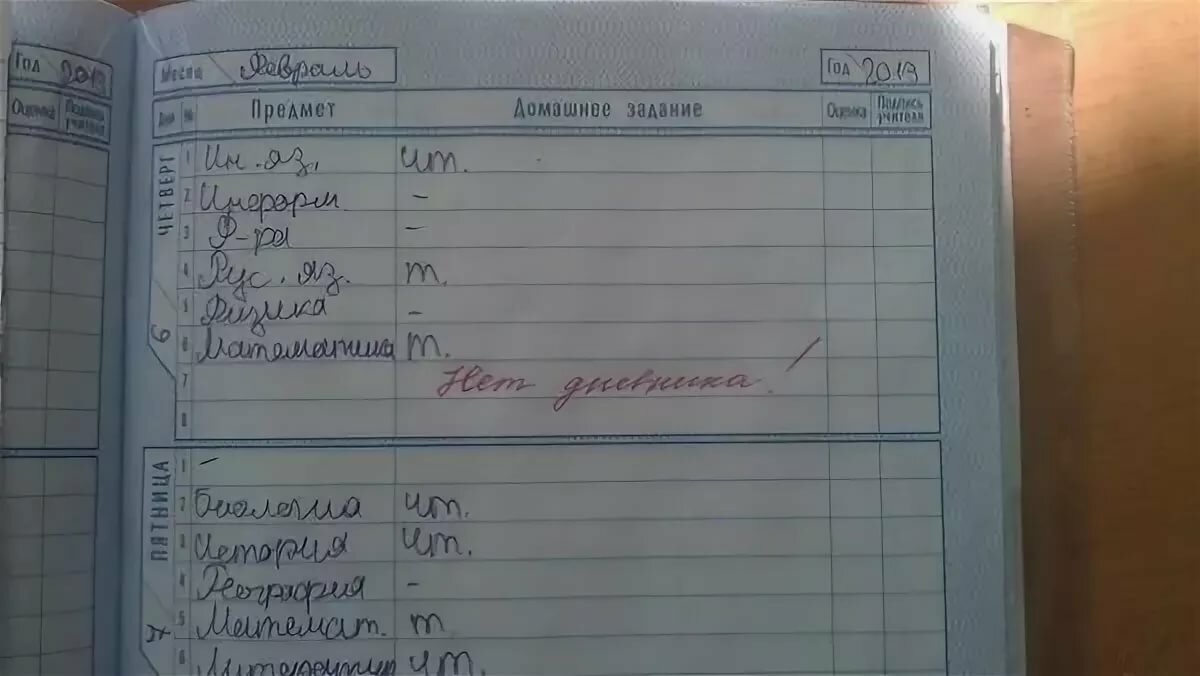 Год 2019
Оценка Подпись учителя
Месяц Февраль Год 2019
Дни № Предмет Домашнее задание Оценка Подпись учителя
ЧЕТВЕРГ
6
1 Ин. яз. чт.
2 Информ. -
3 Ф-ра -
4 Рус. яз. т.
5 Физика -
6 Математика т.
7 Нет дневника!
8
ПЯТНИЦА
1 -
2 Биология чт.
3 История чт.
4 География -
5 Математ. т
6 Литератур чт.